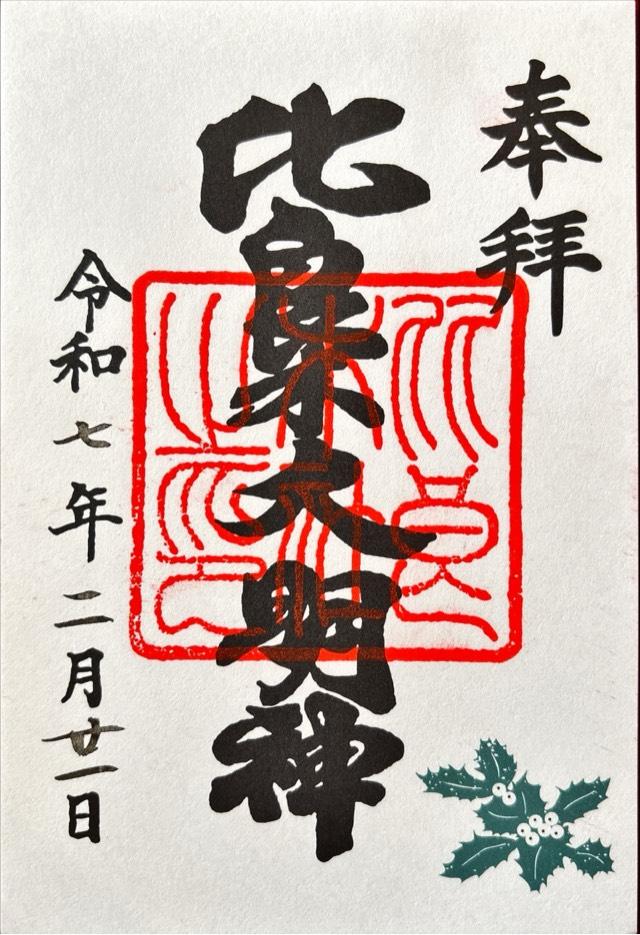 奉拝
比良木大明神
令和七年二月廿一日